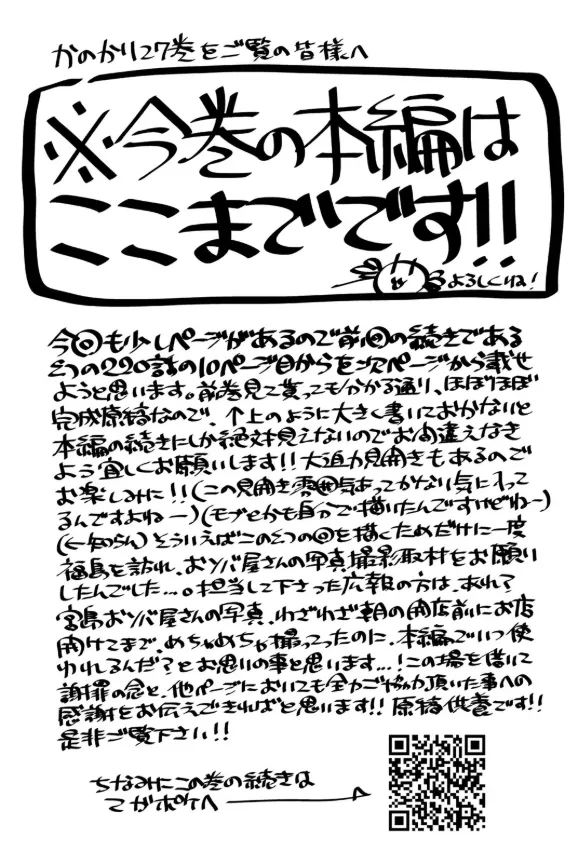 かのかり27巻をご覧の皆様へ
※今巻の本編は
ここまでです!!
よろしくね!
今回も少しページがあるので前回の続きである
2つの220話の10ページ目からを次ページから載せ
ようと思います。前巻見て貰ってもわかる通り、ほぼほぼ
完成原稿なので、↑上のように大きく書いておかないと
本編の続きにしか絶対見えないのでお間違えなき
よう宜しくお願いします!!大迫力見開きもあるので
お楽しみに!!(この見開き雰囲気あってかなり気に入って
るんですよねー)(モブとかも自分で描いたんですけどねー)
(←知らん)そういえばこの2つの回を描くためだけに一度
福島を訪れ、おソバ屋さんの写真撮影取材をお願い
したんでした…。担当して下さった広報の方は、あれ?
宮島おソバ屋さんの写真、わざわざ朝の開店前にお店
開けてまで、めちゃめちゃ撮ってったのに、本編でいつ使
われるんだ?とお思いの事と思います…!この場を借りて
謝罪の念と、他ページにおいても全力ご協力頂いた事への
感謝をお伝えできればと思います!!原稿供養です!!
是非ご覧下さい!!
ちなみにこの巻の続きは
マガポケへ